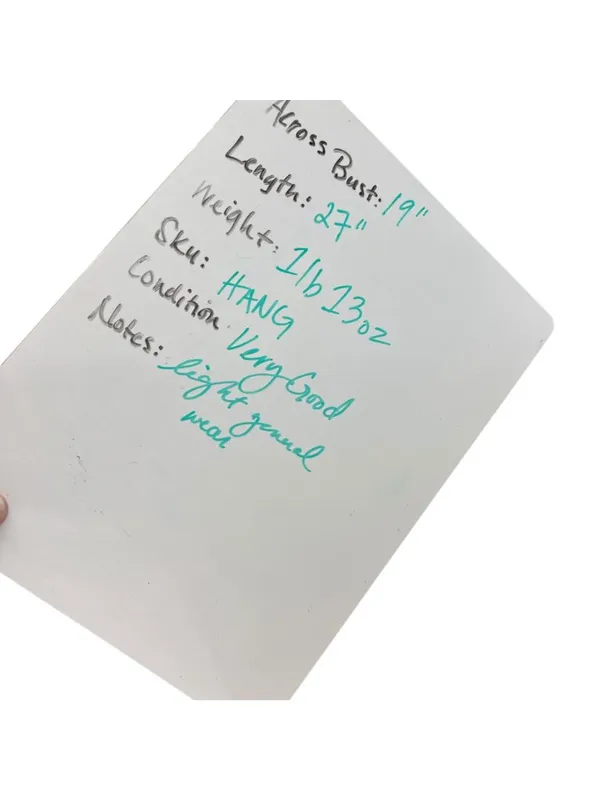 Across Bust: 19"
Length: 27"
Weight: 1lb 13oz
Sku: HANG
Condition: Very Good
Notes: light general
wear